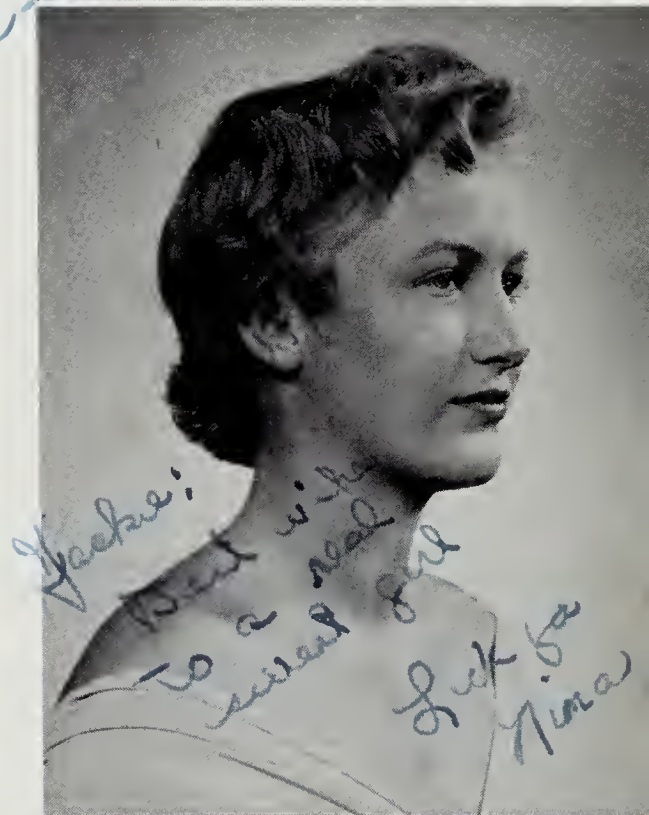 Jackie:
Best wishes
to a real
sweet girl
Luck ya
Nina